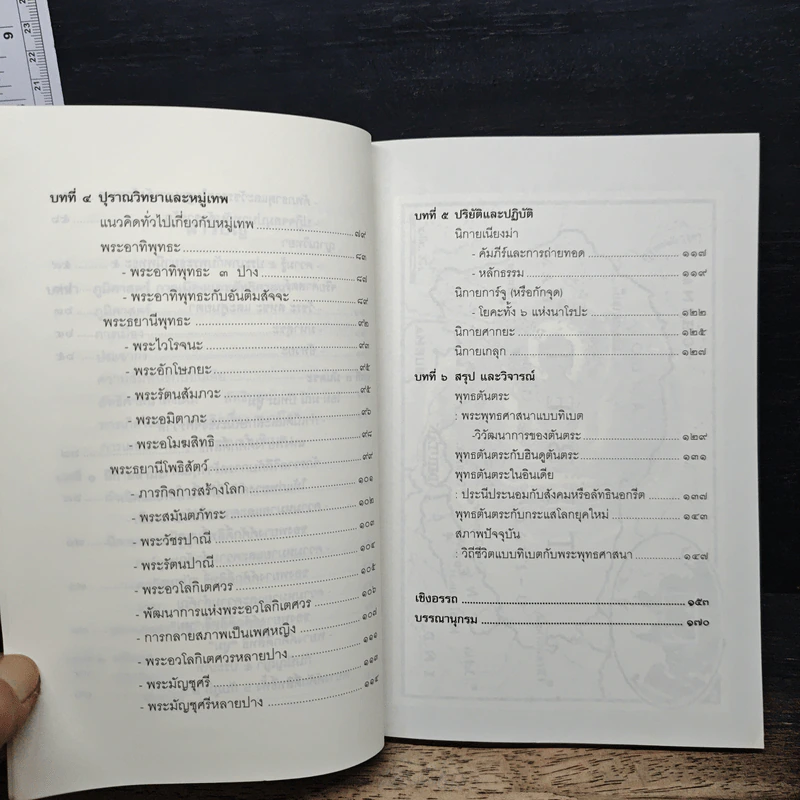 บทที่ ๔ ปุราณวิทยาและหมู่เทพ
แนวคิดทั่วไปเกี่ยวกับหมู่เทพ ๗๙
พระอาทิพุทธะ ๘๓
- พระอาทิพุทธะ ๓ ปาง ๘๗
- พระอาทิพุทธะกับอันติมสัจจะ ๘๙
พระธยานีพุทธะ ๙๒
- พระไวโรจนะ ๙๓
- พระอักโษภยะ ๙๕
- พระรัตนสัมภวะ ๙๕
- พระอมิตาภะ ๙๖
- พระอโมฆสิทธิ ๙๘
พระธยานีโพธิสัตว์ ๙๙
- ภารกิจการสร้างโลก ๑๐๑
- พระสมันตภัทระ ๑๐๒
- พระวัชรปาณี ๑๐๓
- พระรัตนปาณี ๑๐๔
- พระอวโลกิเตศวร ๑๐๕
- พัฒนาการแห่งพระอวโลกิเตศวร ๑๐๖
- การกลายสภาพเป็นเพศหญิง ๑๐๗
- พระอวโลกิเตศวรหลายปาง ๑๑๑
- พระมัญชุศรี ๑๑๓
- พระมัญชุศรีหลายปาง ๑๑๔
บทที่ ๕ ปริยัติและปฏิบัติ
นิกายเนียงม่า
- คัมภีร์และการถ่ายทอด ๑๑๗
- หลักธรรม ๑๑๙
นิกายการ์จู (หรือกักจุด)
- โยคะทั้ง ๖ แห่งนาโรปะ ๑๒๒
นิกายศากยะ ๑๒๕
นิกายเกลุก ๑๒๗
บทที่ ๖ สรุป และวิจารณ์
พุทธตันตระ
: พระพุทธศาสนาแบบทิเบต
-วิวัฒนาการของตันตระ ๑๒๙
พุทธตันตระกับฮินดูตันตระ ๑๓๑
พุทธตันตระในอินเดีย
: ประนีประนอมกับสังคมหรือลัทธินอกรีต ๑๓๗
พุทธตันตระกับกระแสโลกยุคใหม่ ๑๔๓
สภาพปัจจุบัน
: วิถีชีวิตแบบทิเบตกับพระพุทธศาสนา ๑๔๗
เชิงอรรถ ๑๕๓
บรรณานุกรม ๑๗๐